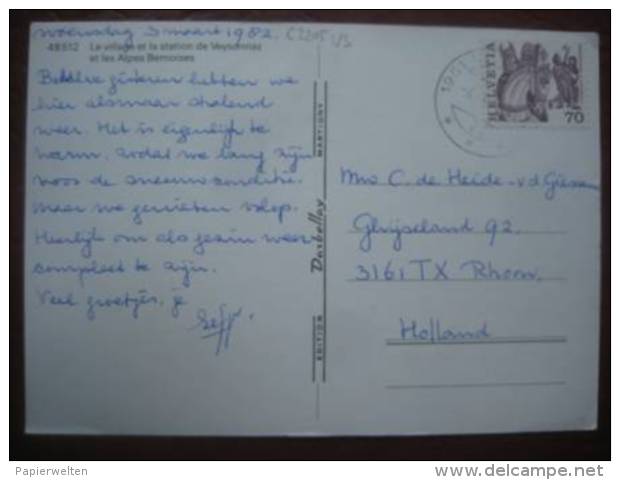 woensdag 3 maart 1982.
48512 Le village et la station de Veysonnaz
et les Alpes Bernoises
Behalve gisteren hebben we
hier alsmaar stralend
weer. Het is eigenlijk te
warm, zodat we bang zijn
voor de sneeuwconditie.
Maar we genieten volop.
Heerlijk om als gezin weer
compleet te zijn.
Veel groetjes, je
EDITION Darbellay MARTIGNY
HELVETIA
70
Mw C. de Heide-v.d. Giessen
Ghijseland 92.
3161 TX Rhoon.
Holland
Papierwelten
delcampe.net